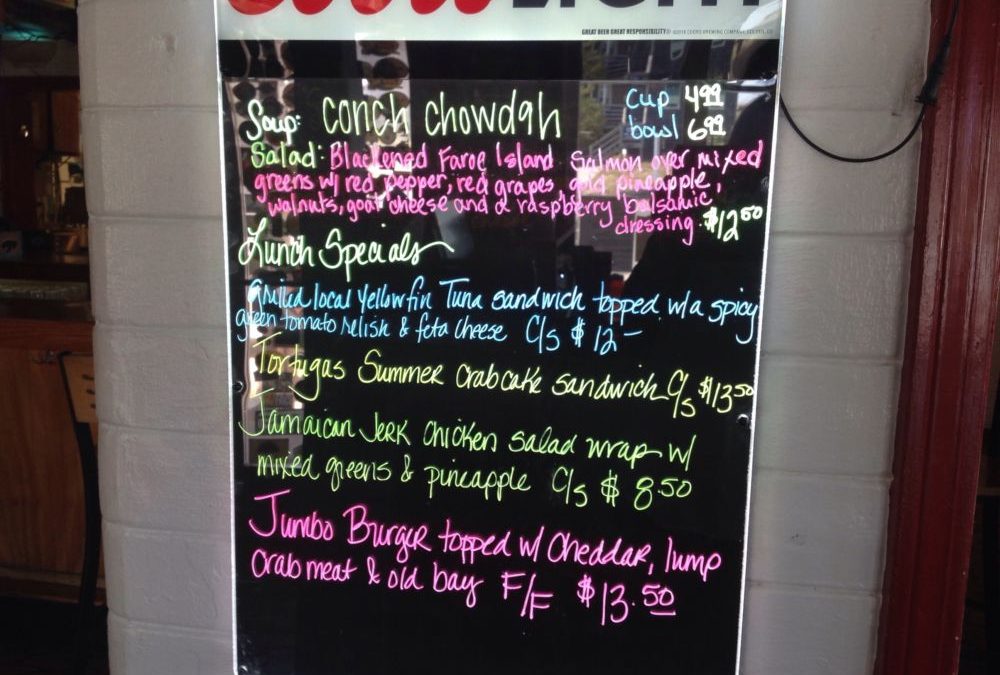 Coors LIGHT
GREAT BEER GREAT RESPONSIBILITY
Soup: Conch Chowdah Cup 4.99
bowl 6.99
Salad: Blackened Faroe Island Salmon over mixed
greens w/ red pepper, red grapes, gold pineapple,
walnuts, goat cheese and a raspberry balsamic
dressing. $12.50
Lunch Specials
Grilled local Yellowfin Tuna sandwich topped w/a spicy
green tomato relish & feta cheese C/S $12-
Tortugas Summer Crabcake sandwich C/S $13.50
Jamaican Jerk Chicken salad wrap w/
mixed greens & pineapple C/S $8.50
Jumbo Burger topped w/ Cheddar, lump
crab meat & old bay F/F $13.50